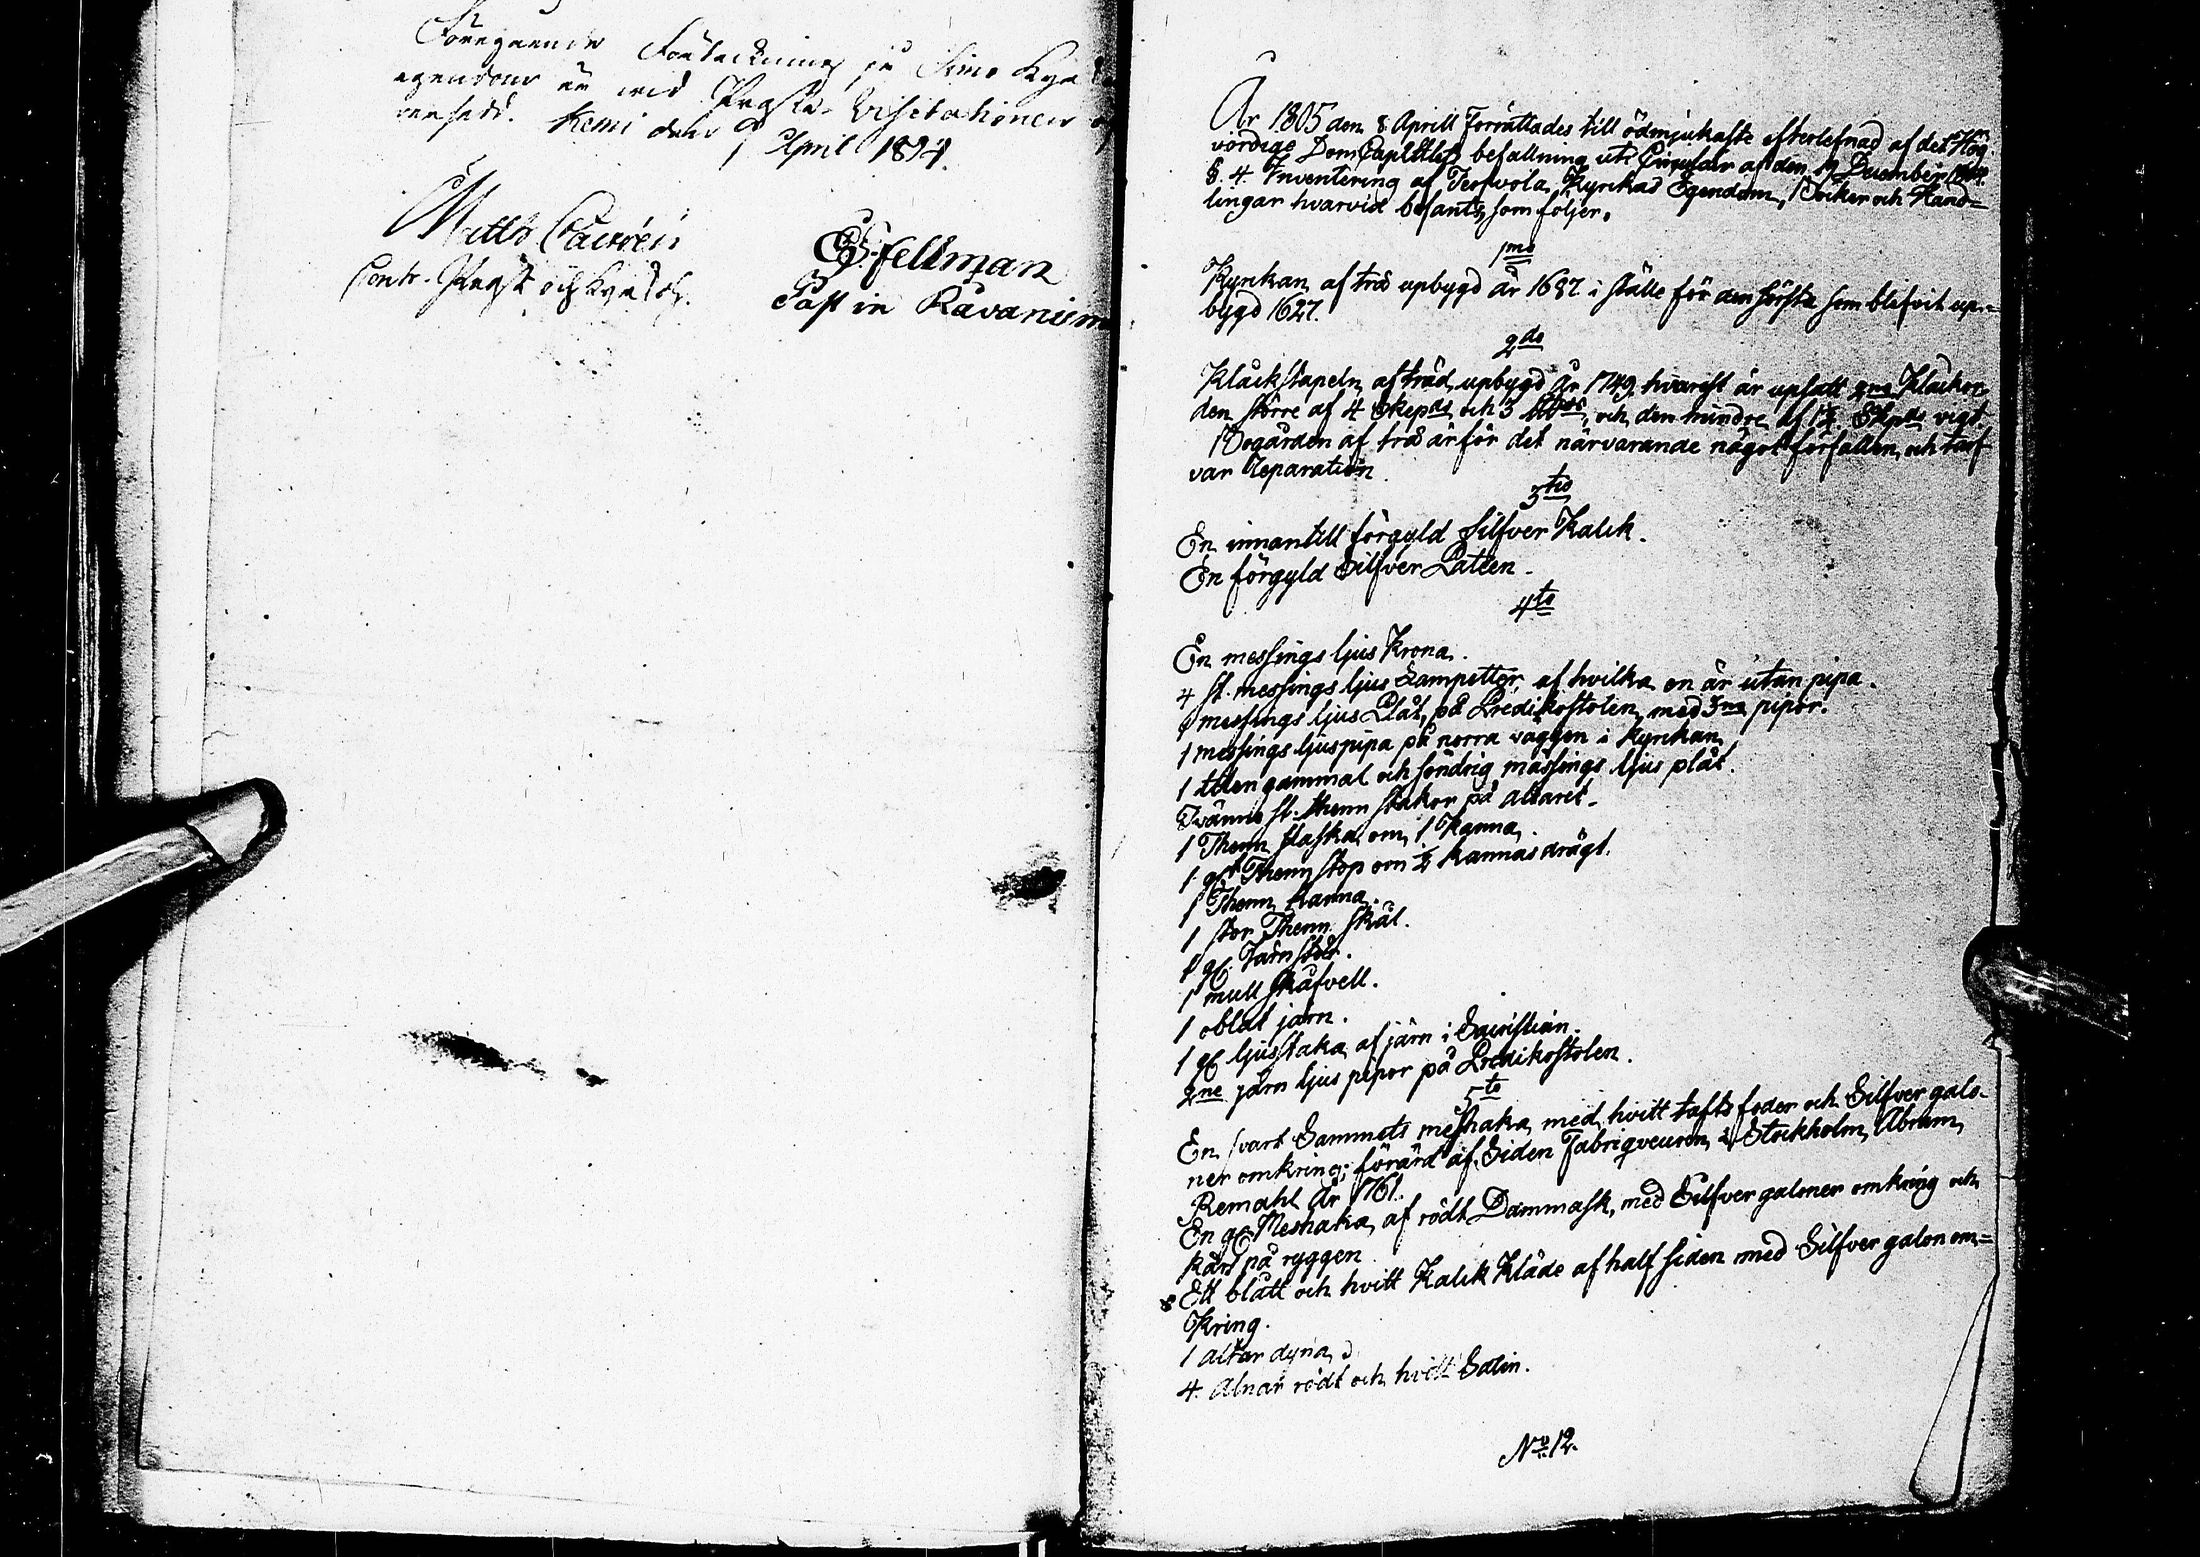 Föregående Förteckning på Simo Kyrko
egendom är vid Prosts-Visitationen
Kemi den April 1824.
Matts
Contr. Prost och Kyrkoh.
E. Fellman
Past in Råvaniem
År 1805 den 8 Aprill Förrättades till ödmjukaste efterlefnad af det Hög
vördige DomCapitlets befallning uti Circulair af den December
§. 4. Inventering af Terfvola Kyrkas Egendom, Böcker och Hand=
lingar hvarvid befants som följer.
1mo
Kyrkan afträ upbygd år 1687 i ställe för den första som blefvit up=
bygd 1627.
2do
Klåckstapeln af träd upbygd år 1749, hvarest är upsatt 2ne Kláckor
den större af 4 Skepds och 3 och den mindre af 1½ Skpds vigt.
Bogården af trä är för det närvarande något förfallen, och tarf
var Reparation
3tio
En innantill förgyld Silfver Kalik.
En förgyld Silfver Pateen.
4to
En messings ljus Krona.
4 st. messings ljus Lampetter af hvilka en är utan pipa.
1 messings ljus Plåt, på Predikostolen med 3ne pipor.
1 messings ljuspipa på norra väggen i Kyrkan
1 liten gammal och söndrig mässings ljus plåt.
Tvänne st. thenn stakar på altaret.
1 Thenn flaska om 1 Kanna.
1 gl Thenn stop om ½ Kannas drägt.
1 Thenn Kanna.
1 stor Thenn Skål.
1 gl. Järnstör.
1 mull skåfvell.
1 oblat järn.
1 gl ljusstaka af järn i Sacristian.
2ne järn ljus pipor på Predikostolen.
5to
En svart Sammets meshaka med hvitt tafts foder och Silfver galo-
ner omkring; förärd af Siden Fabriqveuren i Stockholm Abram
Remahl År 1761.
En gl Meshaka af rödt Dammask, med Silfver galoner omkring och
kårs på ryggen
Ett blått och hvitt Kalik Kläde af half siden med Silfver galon om=
kring.
1 altar dyna
4. Alnar rödt och hvitt Satin.
No 12.